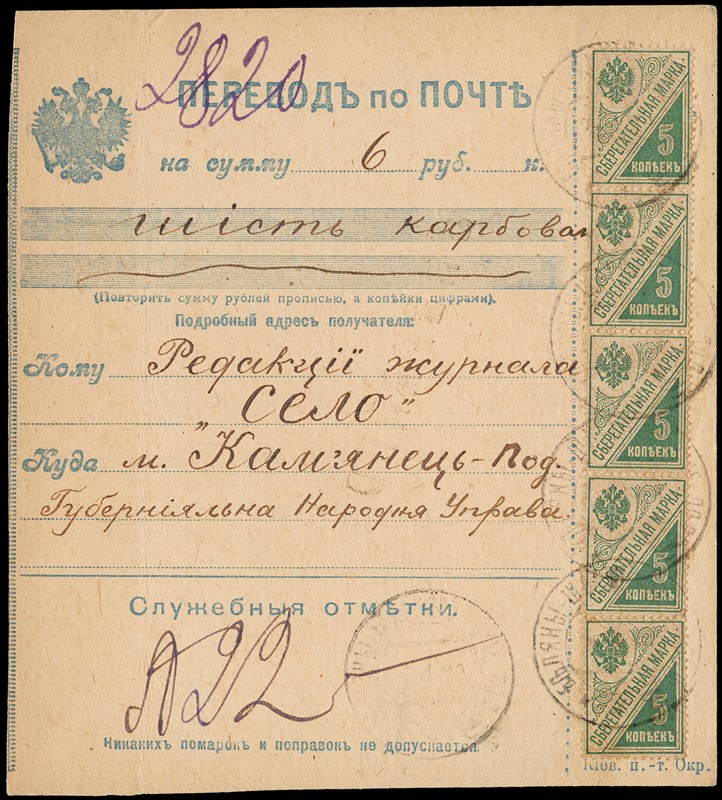 2820
ПЕРЕВОДЪ по ПОЧТѢ
на сумму 6 руб. к.
шість карбован
(Повторить сумму рублей прописью, а копѣйки цифрами).
Подробный адресъ получателя:
Кому Редакції журнала
"Село"
Куда м. "Кам'янець-Под.
Губерніяльна Народня Управа
Служебныя отмѣтки.
22
Никакихъ помарокъ и поправокъ не допускается.
Кіев. п.-т. Окр.
СБЕРЕГАТЕЛЬНАЯ МАРКА
5
КОПѢЕКЪ
СБЕРЕГАТЕЛЬНАЯ МАРКА
5
КОПѢЕКЪ
СБЕРЕГАТЕЛЬНАЯ МАРКА
5
КОПѢЕКЪ
СБЕРЕГАТЕЛЬНАЯ МАРКА
5
КОПѢЕКЪ
СБЕРЕГАТЕЛЬНАЯ МАРКА
5
КОПѢЕКЪ